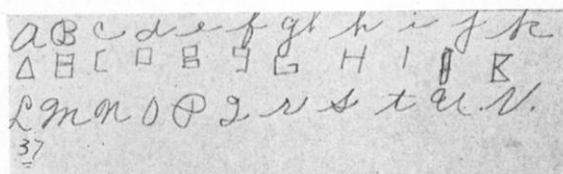 a B c d e f g h i j k
A B C D G H I K
L m n O P q r s t u v.
37